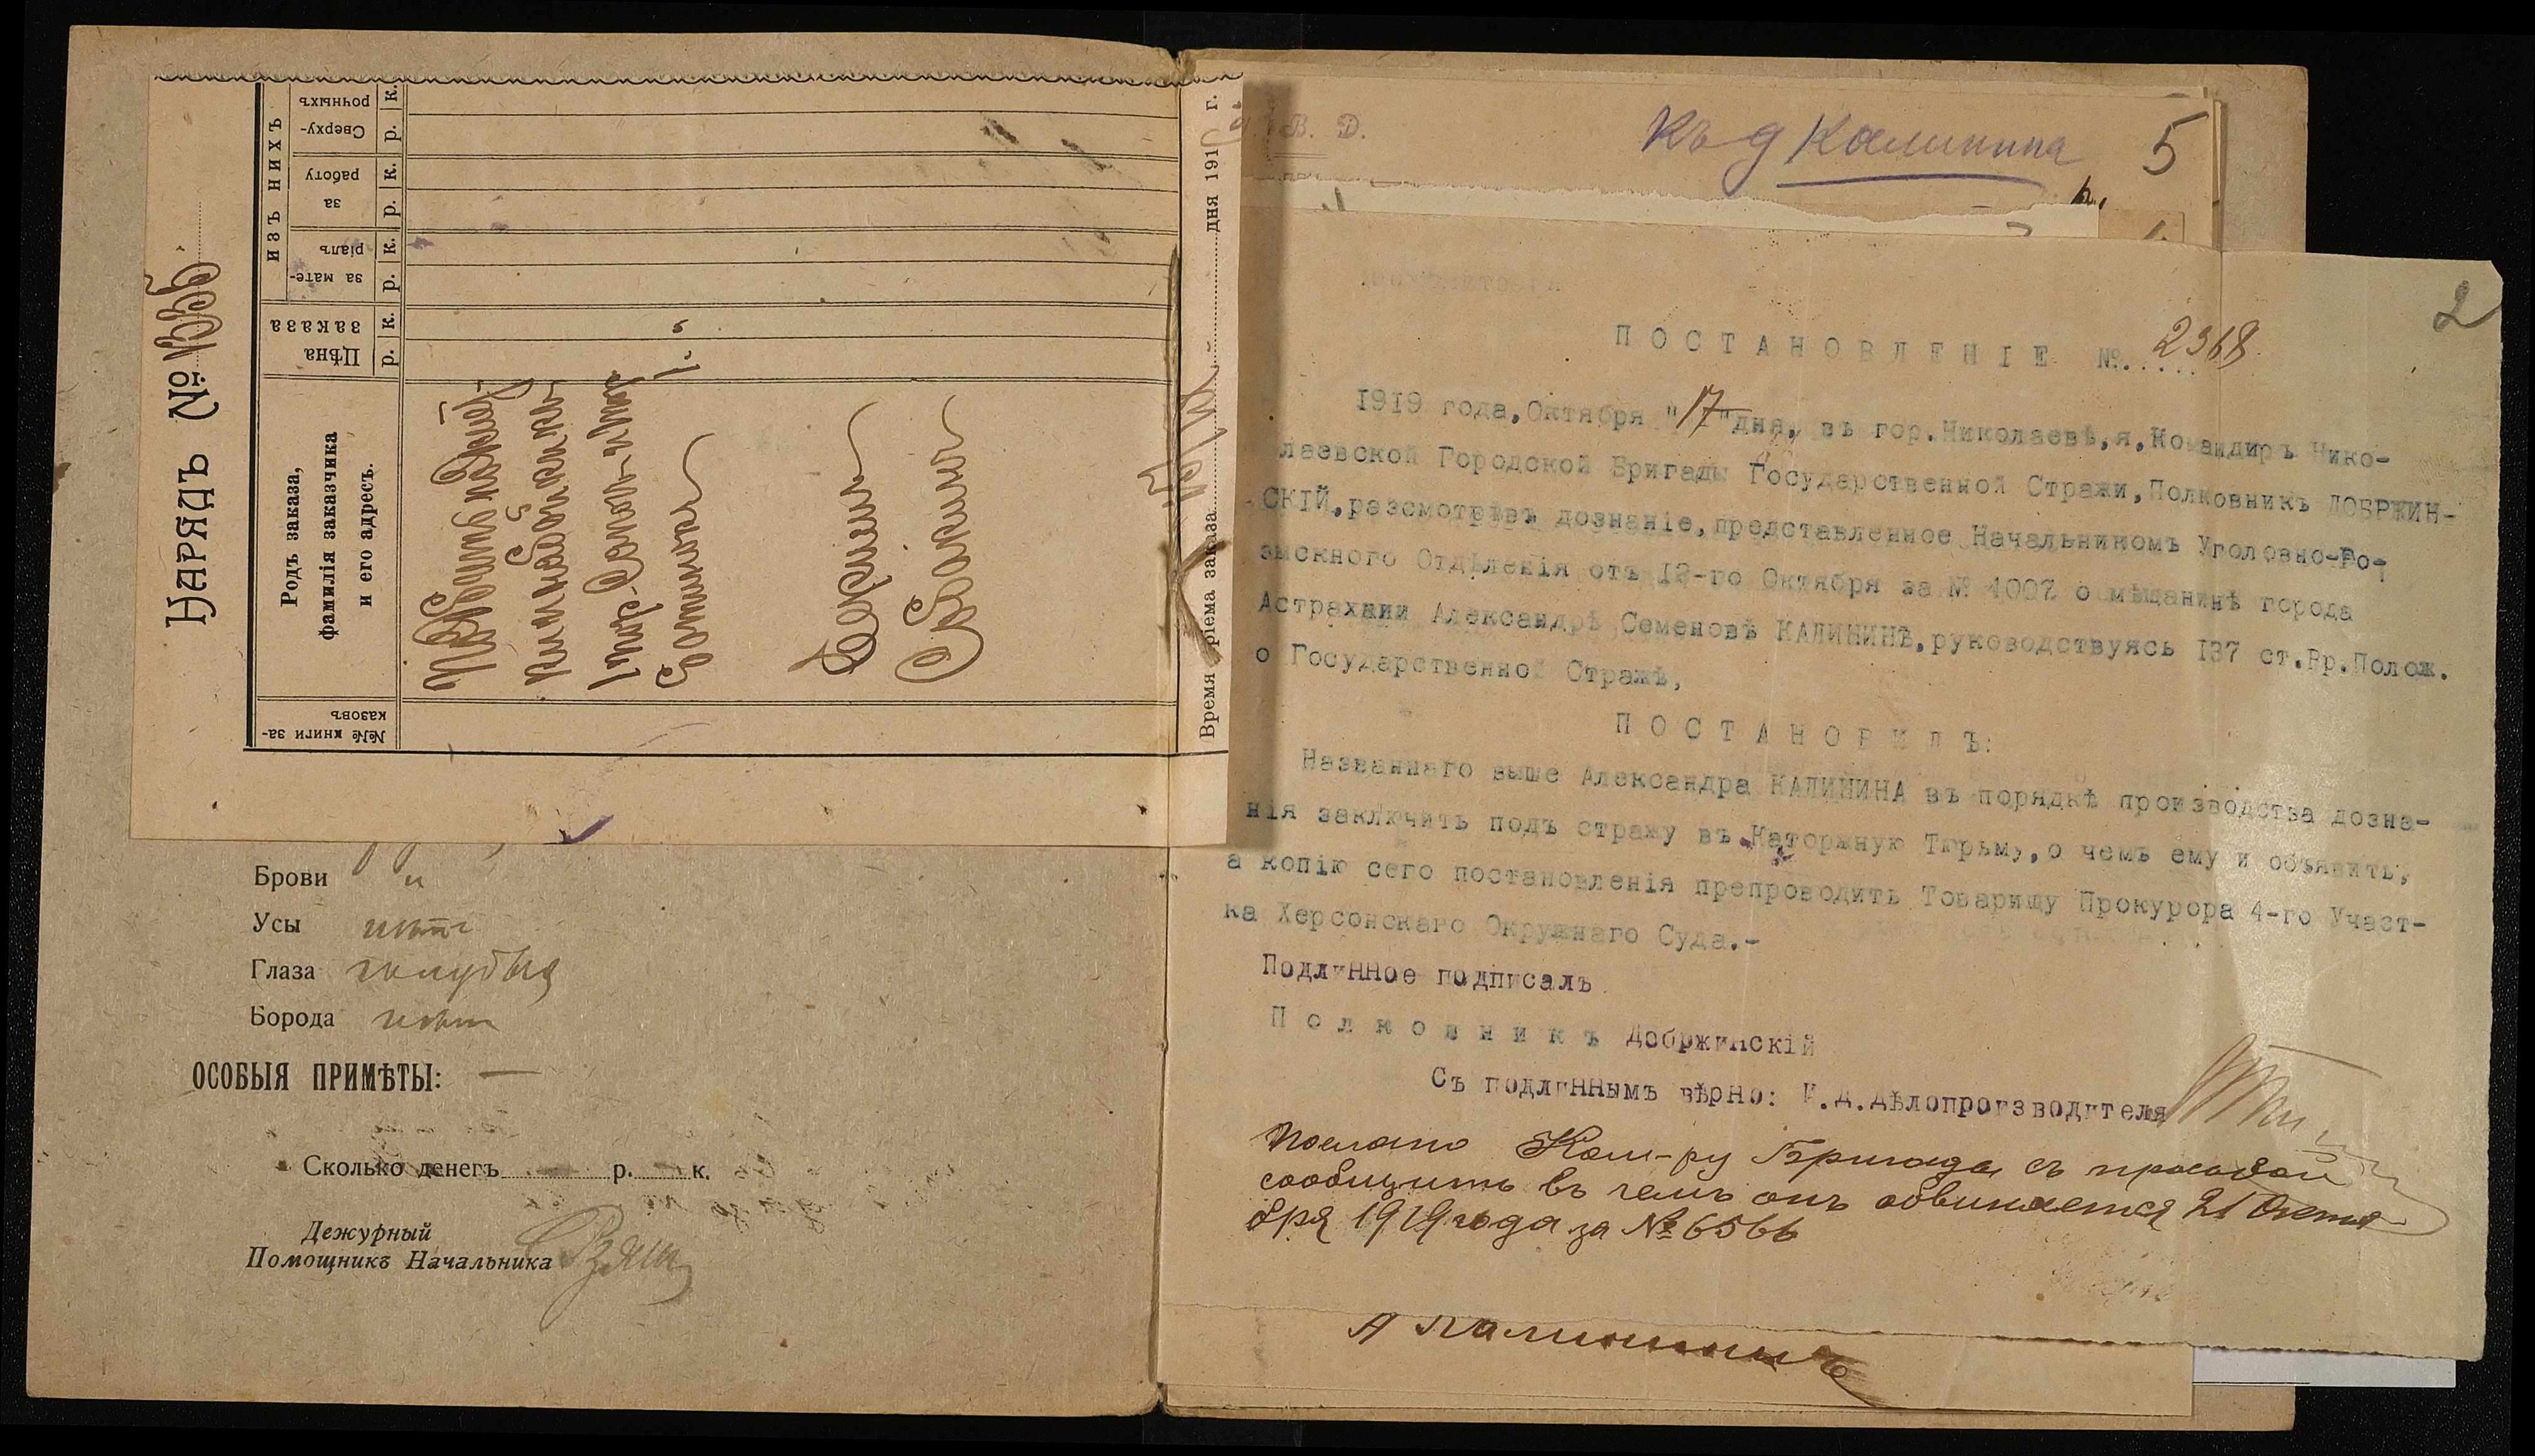 НАРЯДЪ №
Родъ заказа,
фамилія заказчика
и его адресъ.
№№ книги за-
казовъ
Цѣна
заказа
р. к.
ИЗЪ НИХЪ
за мате-
ріалъ
р. к.
за
работу
р. к.
Сверху-
рочныхъ
р. к.
Время пріема заказа дня 191 г.
Брови "
Усы нѣтъ
Глаза голубые
Борода нѣтъ
ОСОБЫЯ ПРИМѢТЫ: —
Сколько денегъ р. к.
Дежурный
Помощникъ Начальника
В. Д.
Къ д Калинина
5
2
ПОСТАНОВЛЕНІЕ №..... 2368
1919 года,Октября "17"дня, въ гор.Николаевѣ,я,Командиръ Нико-
лаевской Городской Бригады Государственной Стражи,Полковникъ ДОБРЖИН-
СКІЙ,разсмотрѣвъ дознаніе,представленное Начальникомъ Уголовно-Ро-
зыскного Отдѣленія отъ 13-го Октября за № 4007 о мѣщанинѣ города
Астрахани Александрѣ Семеновѣ КАЛИНИНѢ,руководствуясь 137 ст.Вр.Полож.
о Государственной Стражѣ,
ПОСТАНОВИЛЪ:
Названнаго выше Александра КАЛИНИНА въ порядкѣ производства дозна-
нія заключить подъ стражу въ Каторжную Тюрьму,о чемъ ему и объявить,
а копію сего постановленія препроводить Товарищу Прокурора 4-го Участ-
ка Херсонскаго Окружнаго Суда.-
Подлинное подписалъ
Полковникъ Добржинскій
Съ подлиннымъ вѣрно: И.д.дѣлопроизводителя
Послано Ком-ру Бригады съ просьбой
сообщить въ чемъ онъ обвиняется 21 Октя
бря 1919 года за № 6566
А Калининъ